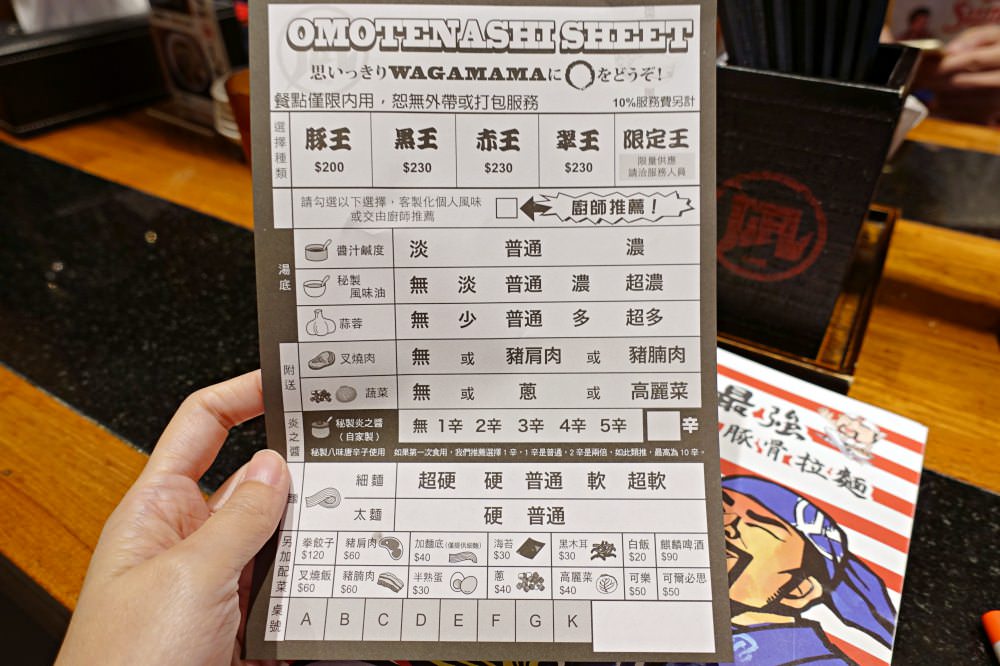 OMOTENASHI SHEET
思いっきりWAGAMAMAに◯をどうぞ!
餐點僅限內用，恕無外帶或打包服務 10%服務費另計
選擇種類 豚王 黒王 赤王 翠王 限定王
$200 $230 $230 $230 限量供應 請洽服務人員
請勾選以下選擇，客製化個人風味
或交由廚師推薦 廚師推薦！
湯底
醬汁鹹度 淡 普通 濃
秘製風味油 無 淡 普通 濃 超濃
蒜蓉 無 少 普通 多 超多
附送
叉燒肉 無 或 豬肩肉 或 豬腩肉
蔬菜 無 或 蔥 或 高麗菜
炎之醬
秘製炎之醬（自家製） 無 1辛 2辛 3辛 4辛 5辛 辛
秘製八味唐辛子使用 如果第一次食用，我們推薦選擇1辛，1辛是普通，2辛是兩倍，如此類推，最高為10辛。
細麵 超硬 硬 普通 軟 超軟
太麵 硬 普通
另加配菜
拳餃子 $120 豬肩肉 $60 加麵底(僅提供細麵) $40 海苔 $30 黑木耳 $30 白飯 $20 麒麟啤酒 $90
叉燒飯 $60 豬腩肉 $60 半熟蛋 $30 蔥 $40 高麗菜 $40 可樂 $50 可爾必思 $50
桌號 A B C D E F G K
最強
豚骨拉麵